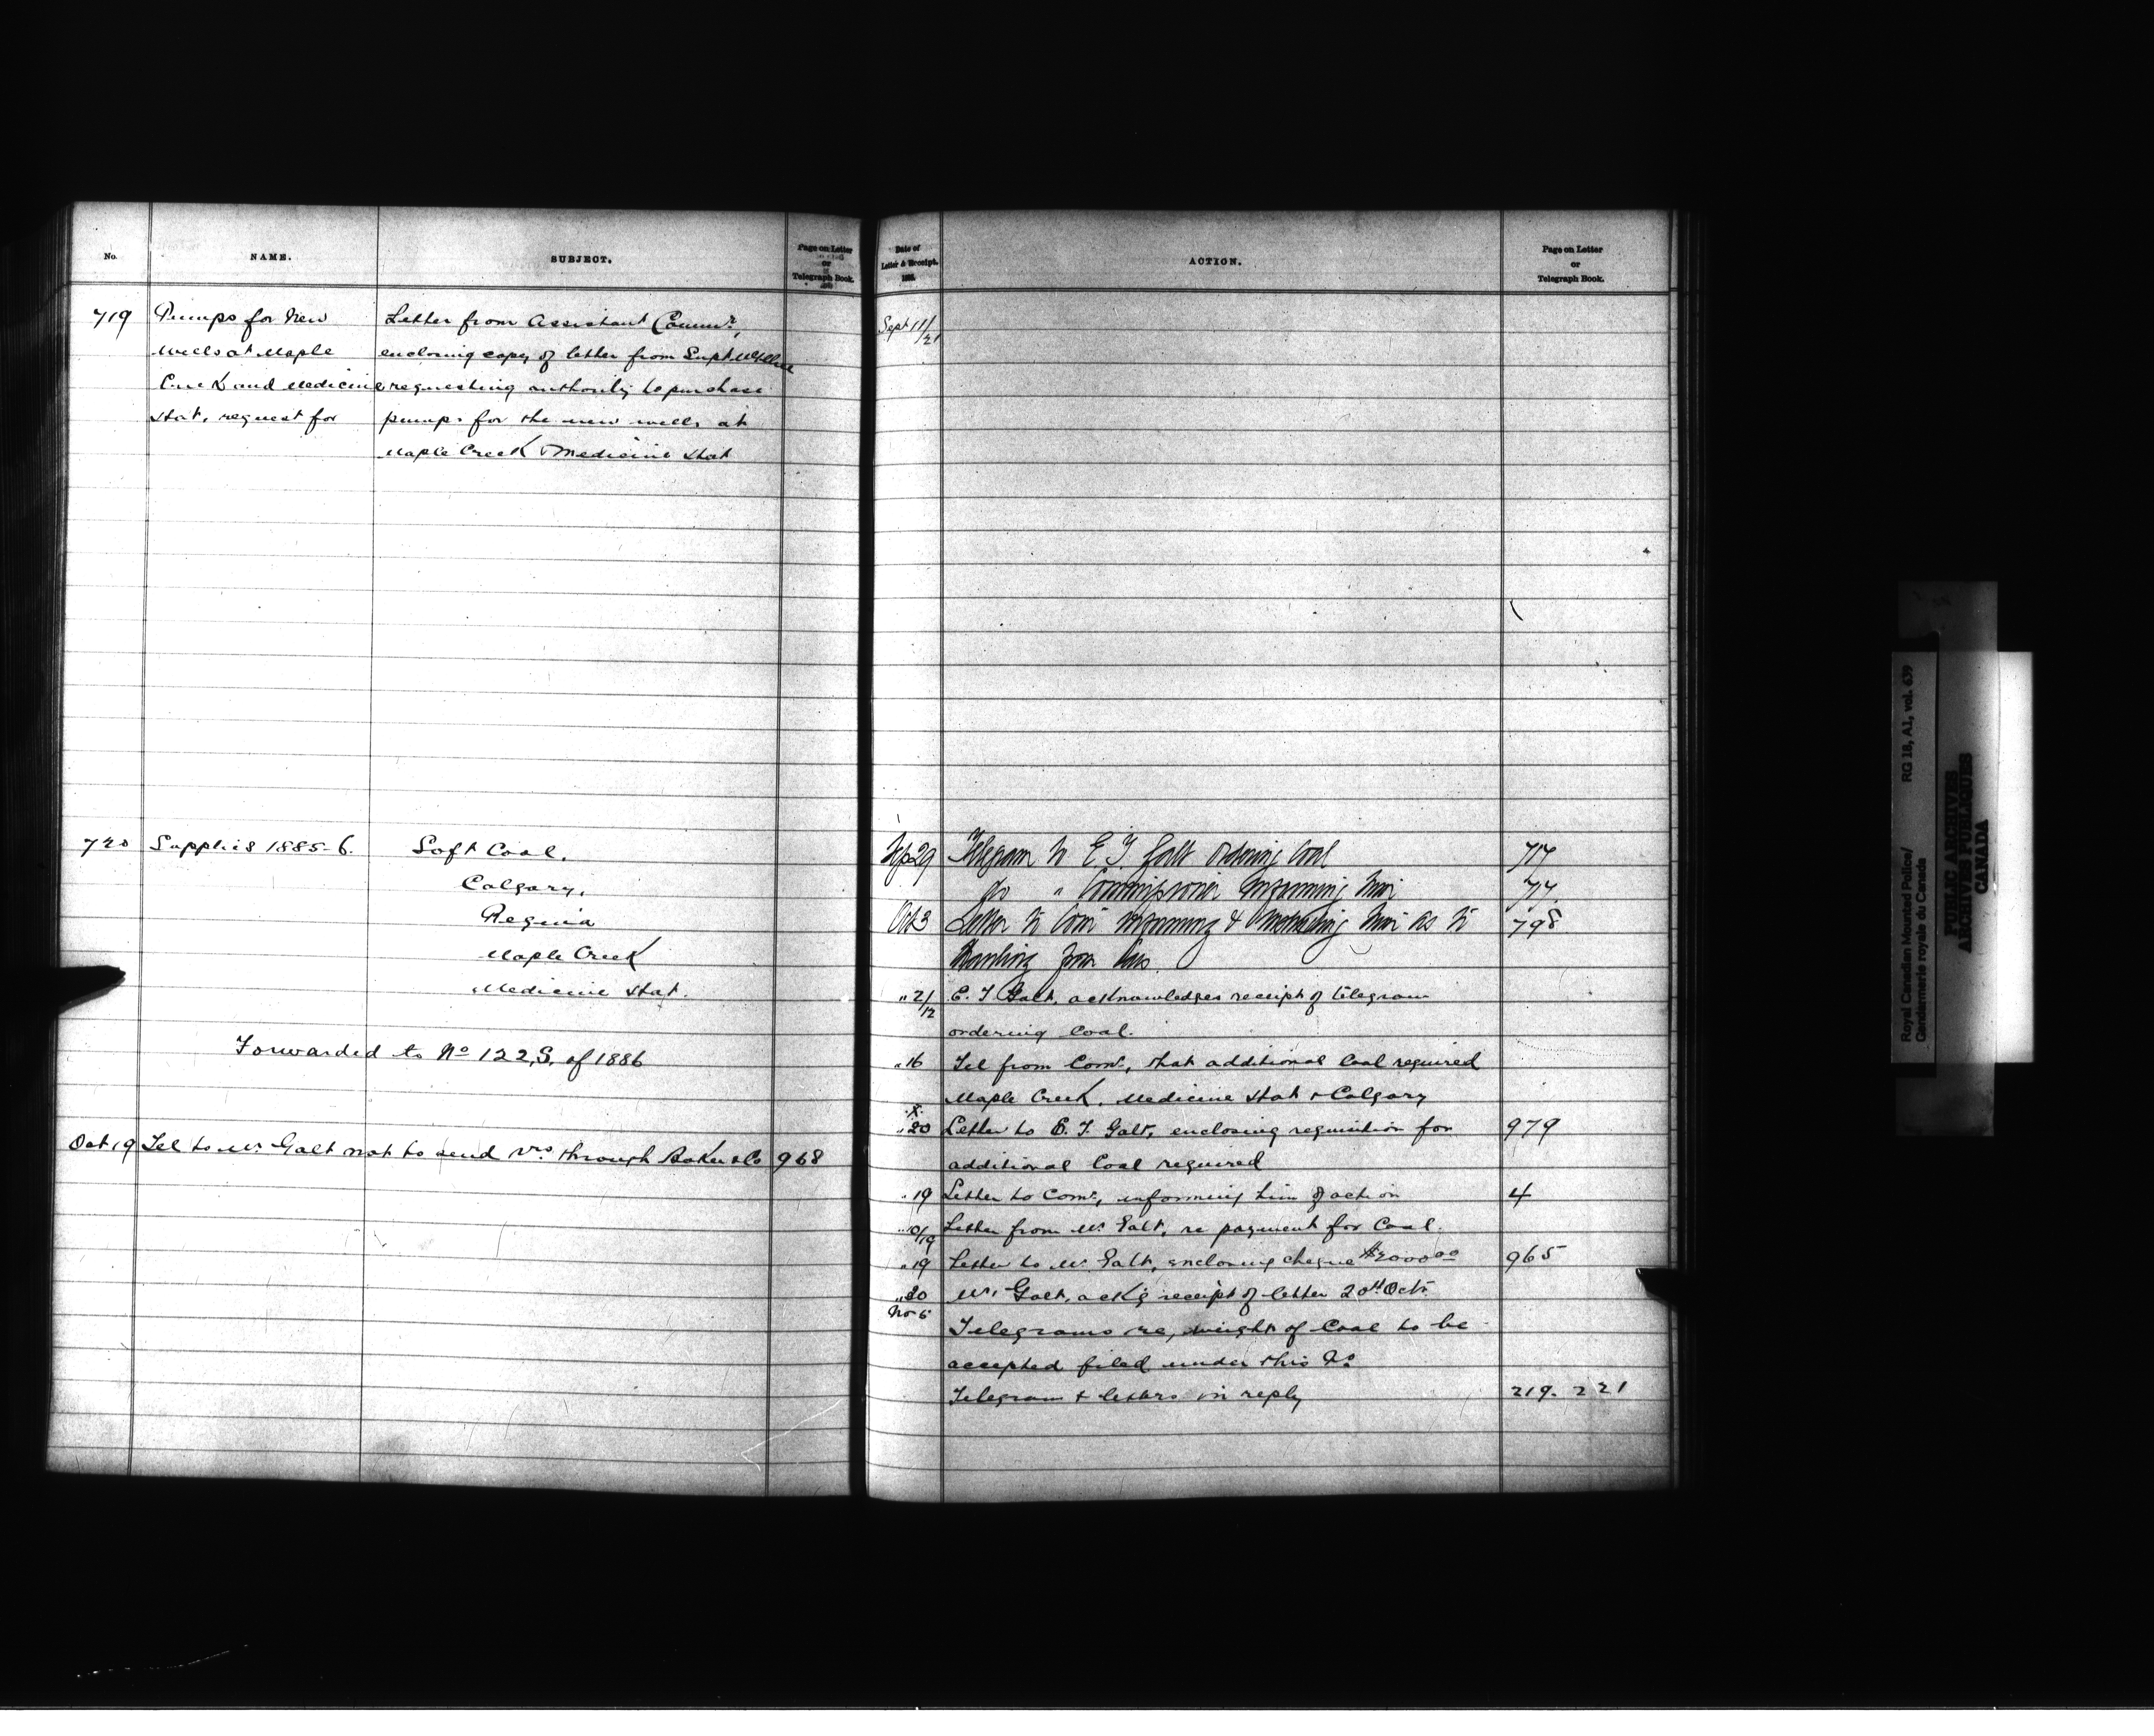 No.
NAME.
SUBJECT.
Page on Letter
or
Telegraph Book.
719
Pumps for New
Wells at Maple
Creek and Medicine
Hat, request for
Letter from Assistant Commr,
enclosing copy of letter from Supt McIllree
requesting authority to purchase
pumps for the new wells at
Maple Creek & Medicine Hat
720 Supplies 1885-6. Soft Coal.
Calgary.
Regina
Maple Creek
Medicine Hat.
Forwarded to No 122 S. of 1886
Oct 19 Tel to Mr Galt not to send through Baker & Co 968
Date of
Letter & Receipt.
188
ACTION.
Page on Letter
or
Telegraph Book.
Sept 11/21
Sep 29 Telegram to E. T. Galt Ordering Coal 717
do " Commissioner informing him 717
Oct 3 Letter to Com informing & instructing him as to 798
Hauling from Cars
" 2/12 E. T. Galt, acknowledges receipt of telegram
ordering Coal.
" 16 Tel from Comr, that additional Coal required
Maple Creek, Medicine Hat & Calgary
" 20 Letter to E. T. Galt, enclosing requisition for 979
additional Coal required
" 19 Letter to Comr, informing him of action 4
" 10/19 Letter from Mr Galt, re payment for Coal.
" 19 Letter to Mr Galt, enclosing cheque 965
" 30 Mr Galt, ackg receipt of letter 20th Oct.
Nov 5
Telegrams re, weight of Coal to be
accepted filed under this No
Telegram & letters in reply 219. 221
Royal Canadian Mounted Police/
Gendarmerie royale du Canada
RG 18, A1, vol. 639
PUBLIC ARCHIVES
ARCHIVES PUBLIQUES
CANADA